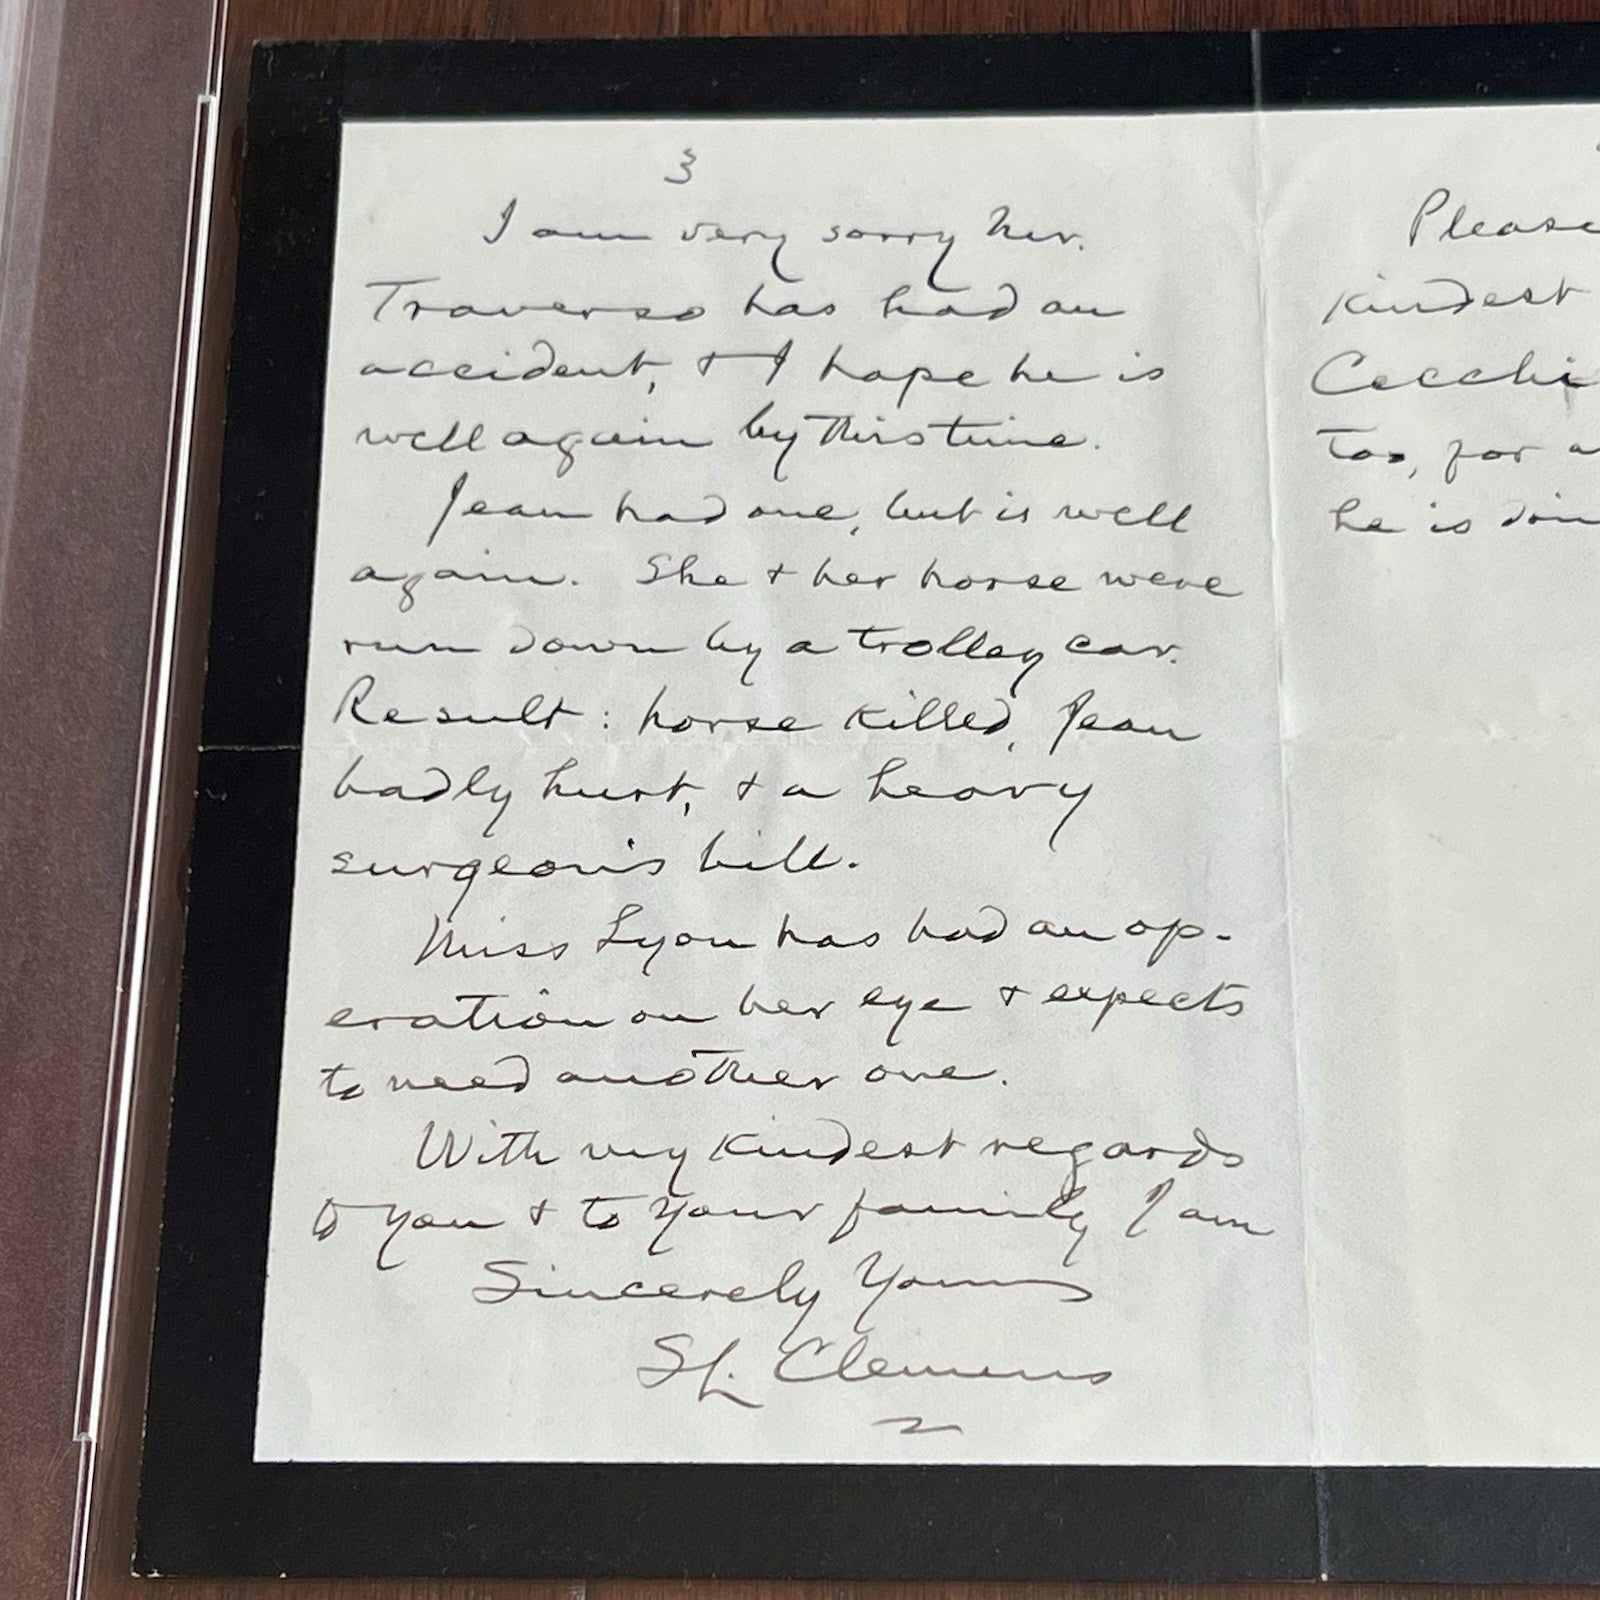 3
I am very sorry Mr.
Traverso has had an
accident, & I hope he is
well again by this time.
Jean had one, but is well
again. She & her horse were
run down by a trolley car.
Result: horse killed, Jean
badly hurt, & a heavy
surgeon's bill.
Miss Lyon has had an op-
eration on her eye & expects
to need another one.
With my kindest regards
to you & to your family I am
Sincerely Yours
SL. Clemens
Please
kindest
Cecchi
too, for a
he is doin